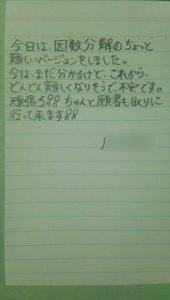 今日は、因数分解のちょっと
難しいバージョンをしました。
今は、まだ分かるけど、これから、
どんどん難しくなりそうで不安です。
頑張ろ!! ちゃんと願書も取りに
行って来ます!!